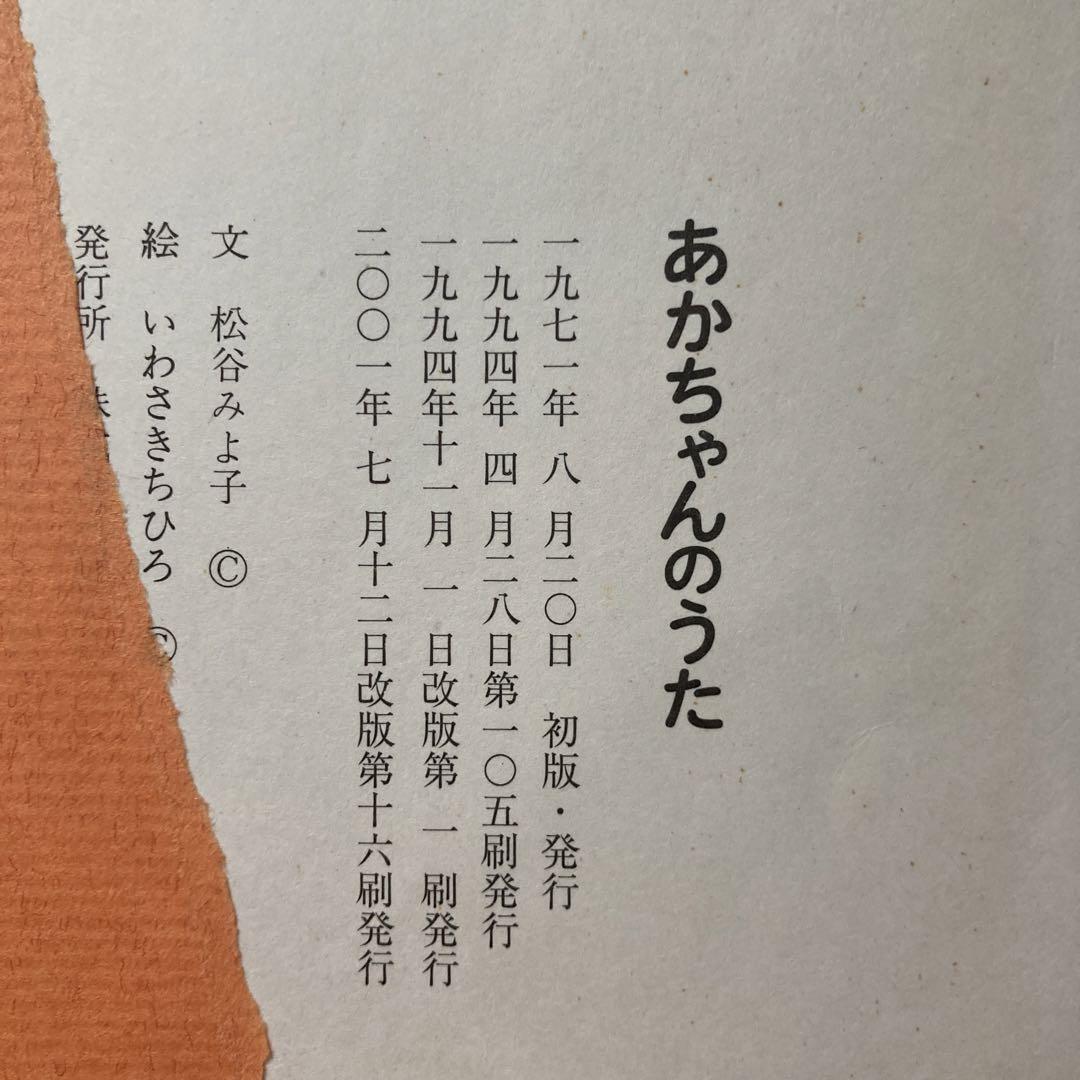 あかちゃんのうた
一九七一年 八 月二〇日 初版・発行
一九九四年 四 月二八日第一〇五刷発行
一九九四年十一月 一 日改版第 一 刷発行
二〇〇一年 七 月十二日改版第十六刷発行
文 松谷みよ子 ©
絵 いわさきちひろ ©
発行所